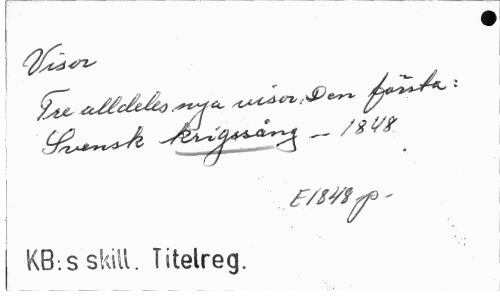 Visor
Tre alldeles nya visor. Den första:
Svensk krigssång — 1848
E1848 p -
KB:s skill. Titelreg.